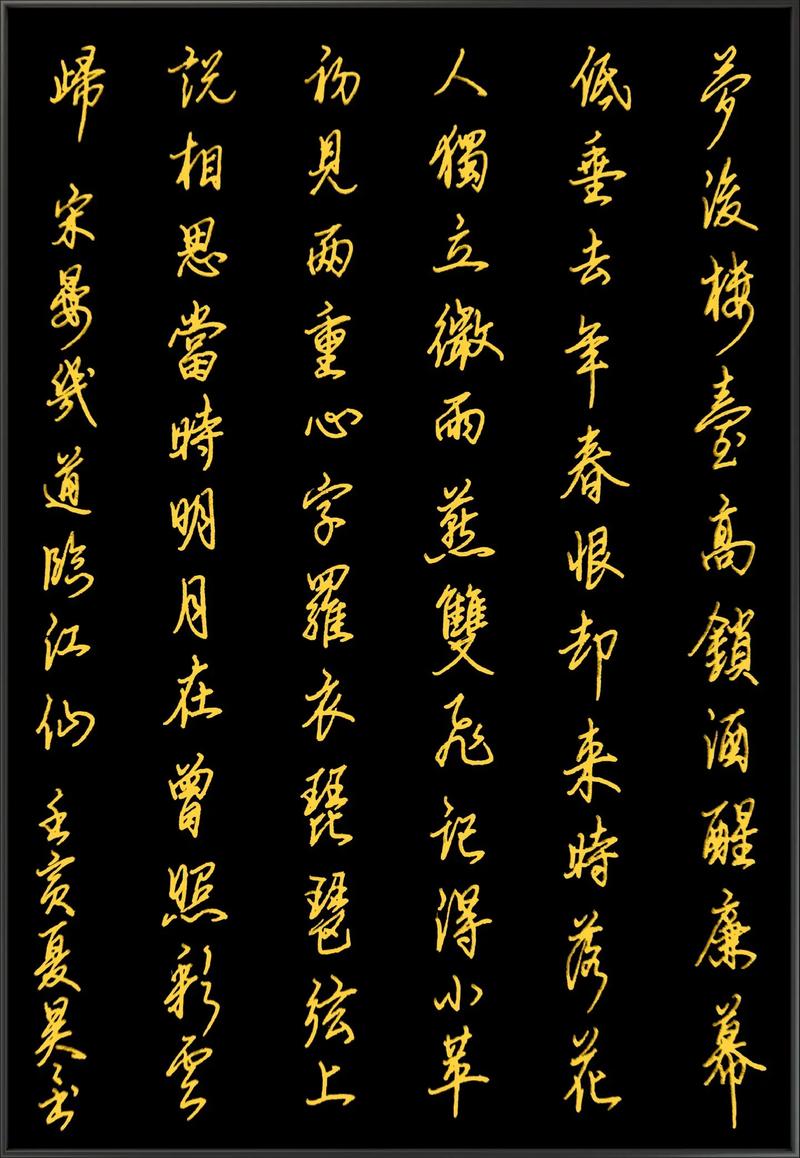 夢後樓臺高鎖酒醒廉幕
低垂去年春恨却来時落花
人獨立微雨燕雙飛記得小苹
初見兩重心字羅衣琵琶弦上
説相思當時明月在曾照彩雲
歸 宋晏幾道臨江仙 壬寅夏昊